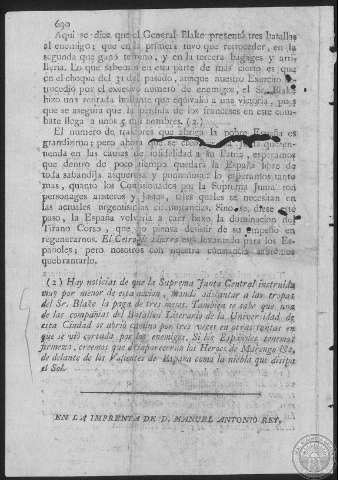 690
Aqui se dice que el General Blake presentó tres batallas
al enemigo; que en la primera tuvo que retroceder, en la
segunda que ganó terreno, y en la tercera bagages y arti-
lleria. Lo que sabemos en esta parte de mas cierto es que
en el choque del 31 del pasado, aunque nuestro Exercito
trocedió por el excesivo número de enemigos, el Sr. Blake
hizo una retirada brillante que equivalió a una victoria, pues
que se asegura que la pérdida de los franceses en este com-
bate llega a unos 5 mil hombres. (2.)
El número de traidores que abriga la pobre España es
grandisimo; pero ahora que se
tienda en las causas de infidelidad a su Patria, esperamos
que dentro de poco tiempo quedará la España libre de
toda sabandija asquerosa y ponzoñosa: lo esperamos tanto
mas, quanto los Comisionados por la Suprema Junta son
personages austeros y justos, tales quales se necesitan en
las actuales urgentisimas circunstancias. Sino se diese este
paso, la España volveria a caer baxo la dominacion del
Tirano Corso, que no piensa desistir de su empeño en
regenerarnos. El Cetro de hierro está levantado para los Es-
pañoles; pero nosotros con nuestra constancia
quebrantarlo.
(2) Hay noticias de que la Suprema Junta Central instruida
muy por menor de esta accion, mandó adelantar a las tropas
del Sr. Blake la paga de tres meses. Tambien se sabe que una
de las compañias del Batallon Literario de la Universidad de
esta Ciudad se abrió camino por tres veces en otras tantas en
que se vió cortada por los enemigos. Si los Españoles tenemos
firmeza, creemos que desaparecerán los Heroes de Marengo &c.
de delante de los Valientes de España como la niebla que disipa
el Sol.
EN LA IMPRENTA DE D. MANUEL ANTONIO REY.